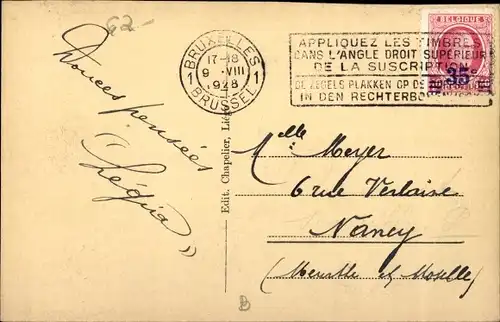 62-
BRUXELLES
17-18
9 VIII
1 1
1928
BRUSSEL
APPLIQUEZ LES TIMBRES
DANS L'ANGLE DROIT SUPÉRIEUR
DE LA SUSCRIPTION
DE ZEGELS PLAKKEN OP DE
IN DEN RECHTERBO
BELGIQUE
35c
Douces pensées
Edit. Chapelier, Liége
Melle Meyer
6 rue Verlaine
Nancy
(Meurthe et Moselle)
B